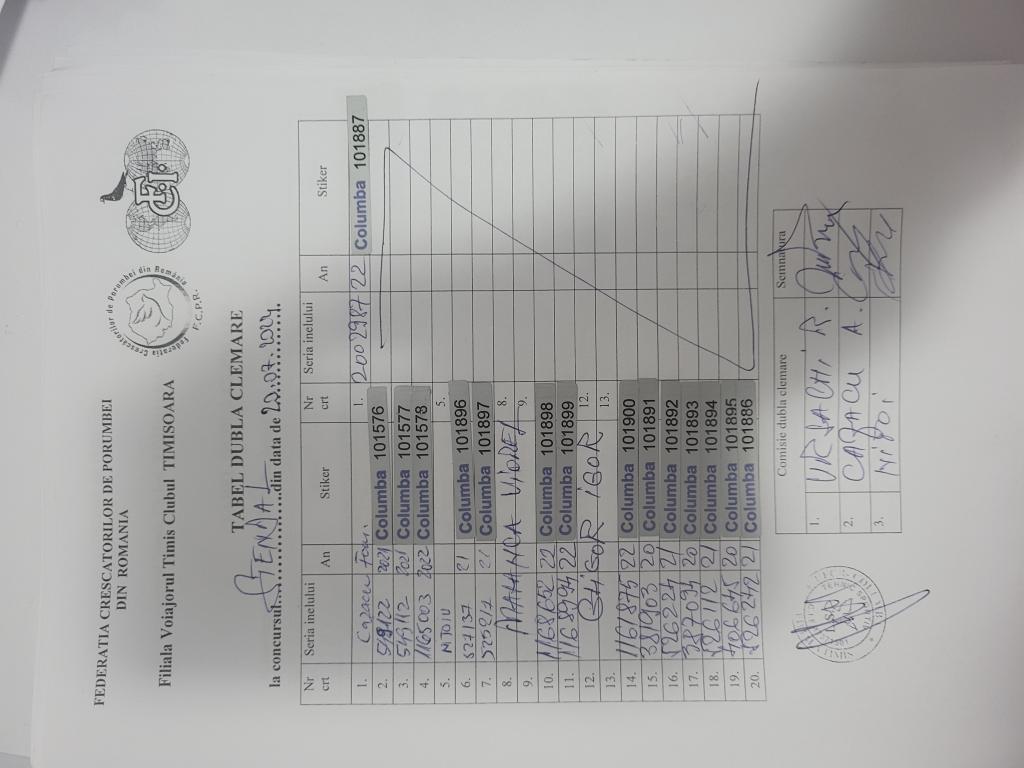 FEDERATIA CRESCATORILOR DE PORUMBEI
DIN ROMANIA
Federatia Crescatorilor de Porumbei din România
F.C.P.R.
FCI
Filiala Voiajorul Timis Clubul TIMISOARA
TABEL DUBLA CLEMARE
la concursul din data de 20.07.2024
Nr crt Seria inelului An Stiker Nr crt Seria inelului An Stiker
1. Cazacu Foni 1. 2002987 22 Columba 101887
2. 519122 2021 Columba 101576
3. 519112 2021 Columba 101577
4. 1165003 2022 Columba 101578
5. 5.
6. 527137 21 Columba 101896
7. Columba 101897
8. VIOREL 8.
9. 9.
10. 1168652 22 Columba 101898
11. 1168994 22 Columba 101899
12. GLIGOR IGOR 12.
13. 13.
14. 1161875 22 Columba 101900
15. 381903 20 Columba 101891
16. 526224 21 Columba 101892
17. 387094 20 Columba 101893
18. 526112 21 Columba 101894
19. 406645 20 Columba 101895
20. 526272 21 Columba 101886
Comisie dubla clemare Semnatura
1. URSACHI R.
2. CAZACU A.
3.